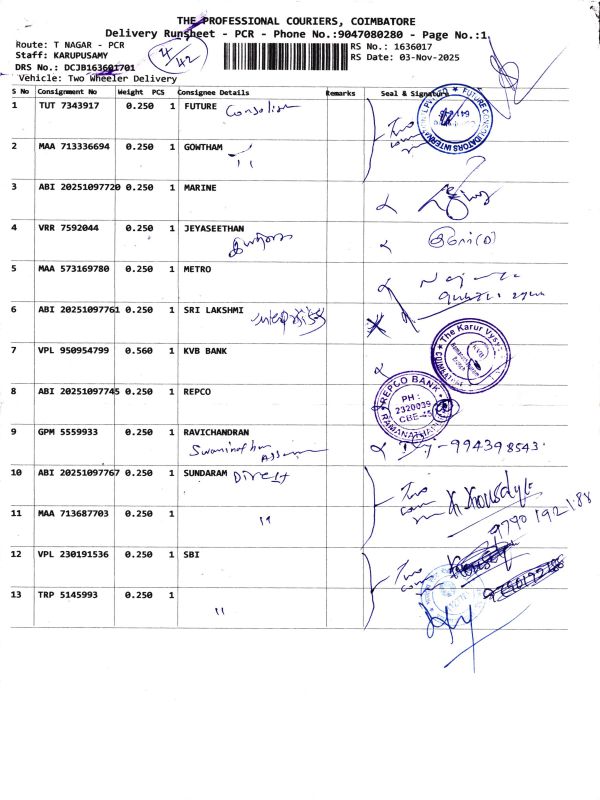 THE PROFESSIONAL COURIERS, COIMBATORE
Delivery Runsheet - PCR - Phone No.:9047080280 - Page No.:1
Route: T NAGAR - PCR
Staff: KARUPUSAMY
DRS No.: DCJB163601701
Vehicle: Two Wheeler Delivery
4/42
RS No.: 1636017
RS Date: 03-Nov-2025
S No Consignment No Weight PCS Consignee Details Remarks Seal & Signature
1 TUT 7343917 0.250 1 FUTURE
2 MAA 713336694 0.250 1 GOWTHAM
Two
3 ABI 20251097720 0.250 1 MARINE
4 VRR 7592044 0.250 1 JEYASEETHAN
5 MAA 573169780 0.250 1 METRO
6 ABI 20251097761 0.250 1 SRI LAKSHMI
7 VPL 950954799 0.560 1 KVB BANK
The Karur Vysya
8 ABI 20251097745 0.250 1 REPCO
REPCO BANK
PH :
2320039
CBE-45
RAMANATHAPURAM
9 GPM 5559933 0.250 1 RAVICHANDRAN
994398543
10 ABI 20251097767 0.250 1 SUNDARAM Direct
Two
11 MAA 713687703 0.250 1 "
9790192188
12 VPL 230191536 0.250 1 SBI
Two
13 TRP 5145993 0.250 1
"